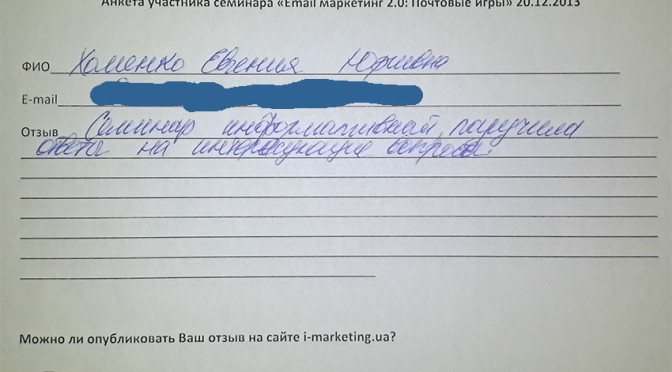 Анкета участника семинара «Email маркетинг 2.0: Почтовые игры» 20.12.2013
ФИО Хоменко Евгения Юриевна
E-mail
Отзыв Семинар информативный, получила
ответы на интересующие вопросы.
Можно ли опубликовать Ваш отзыв на сайте i-marketing.ua?